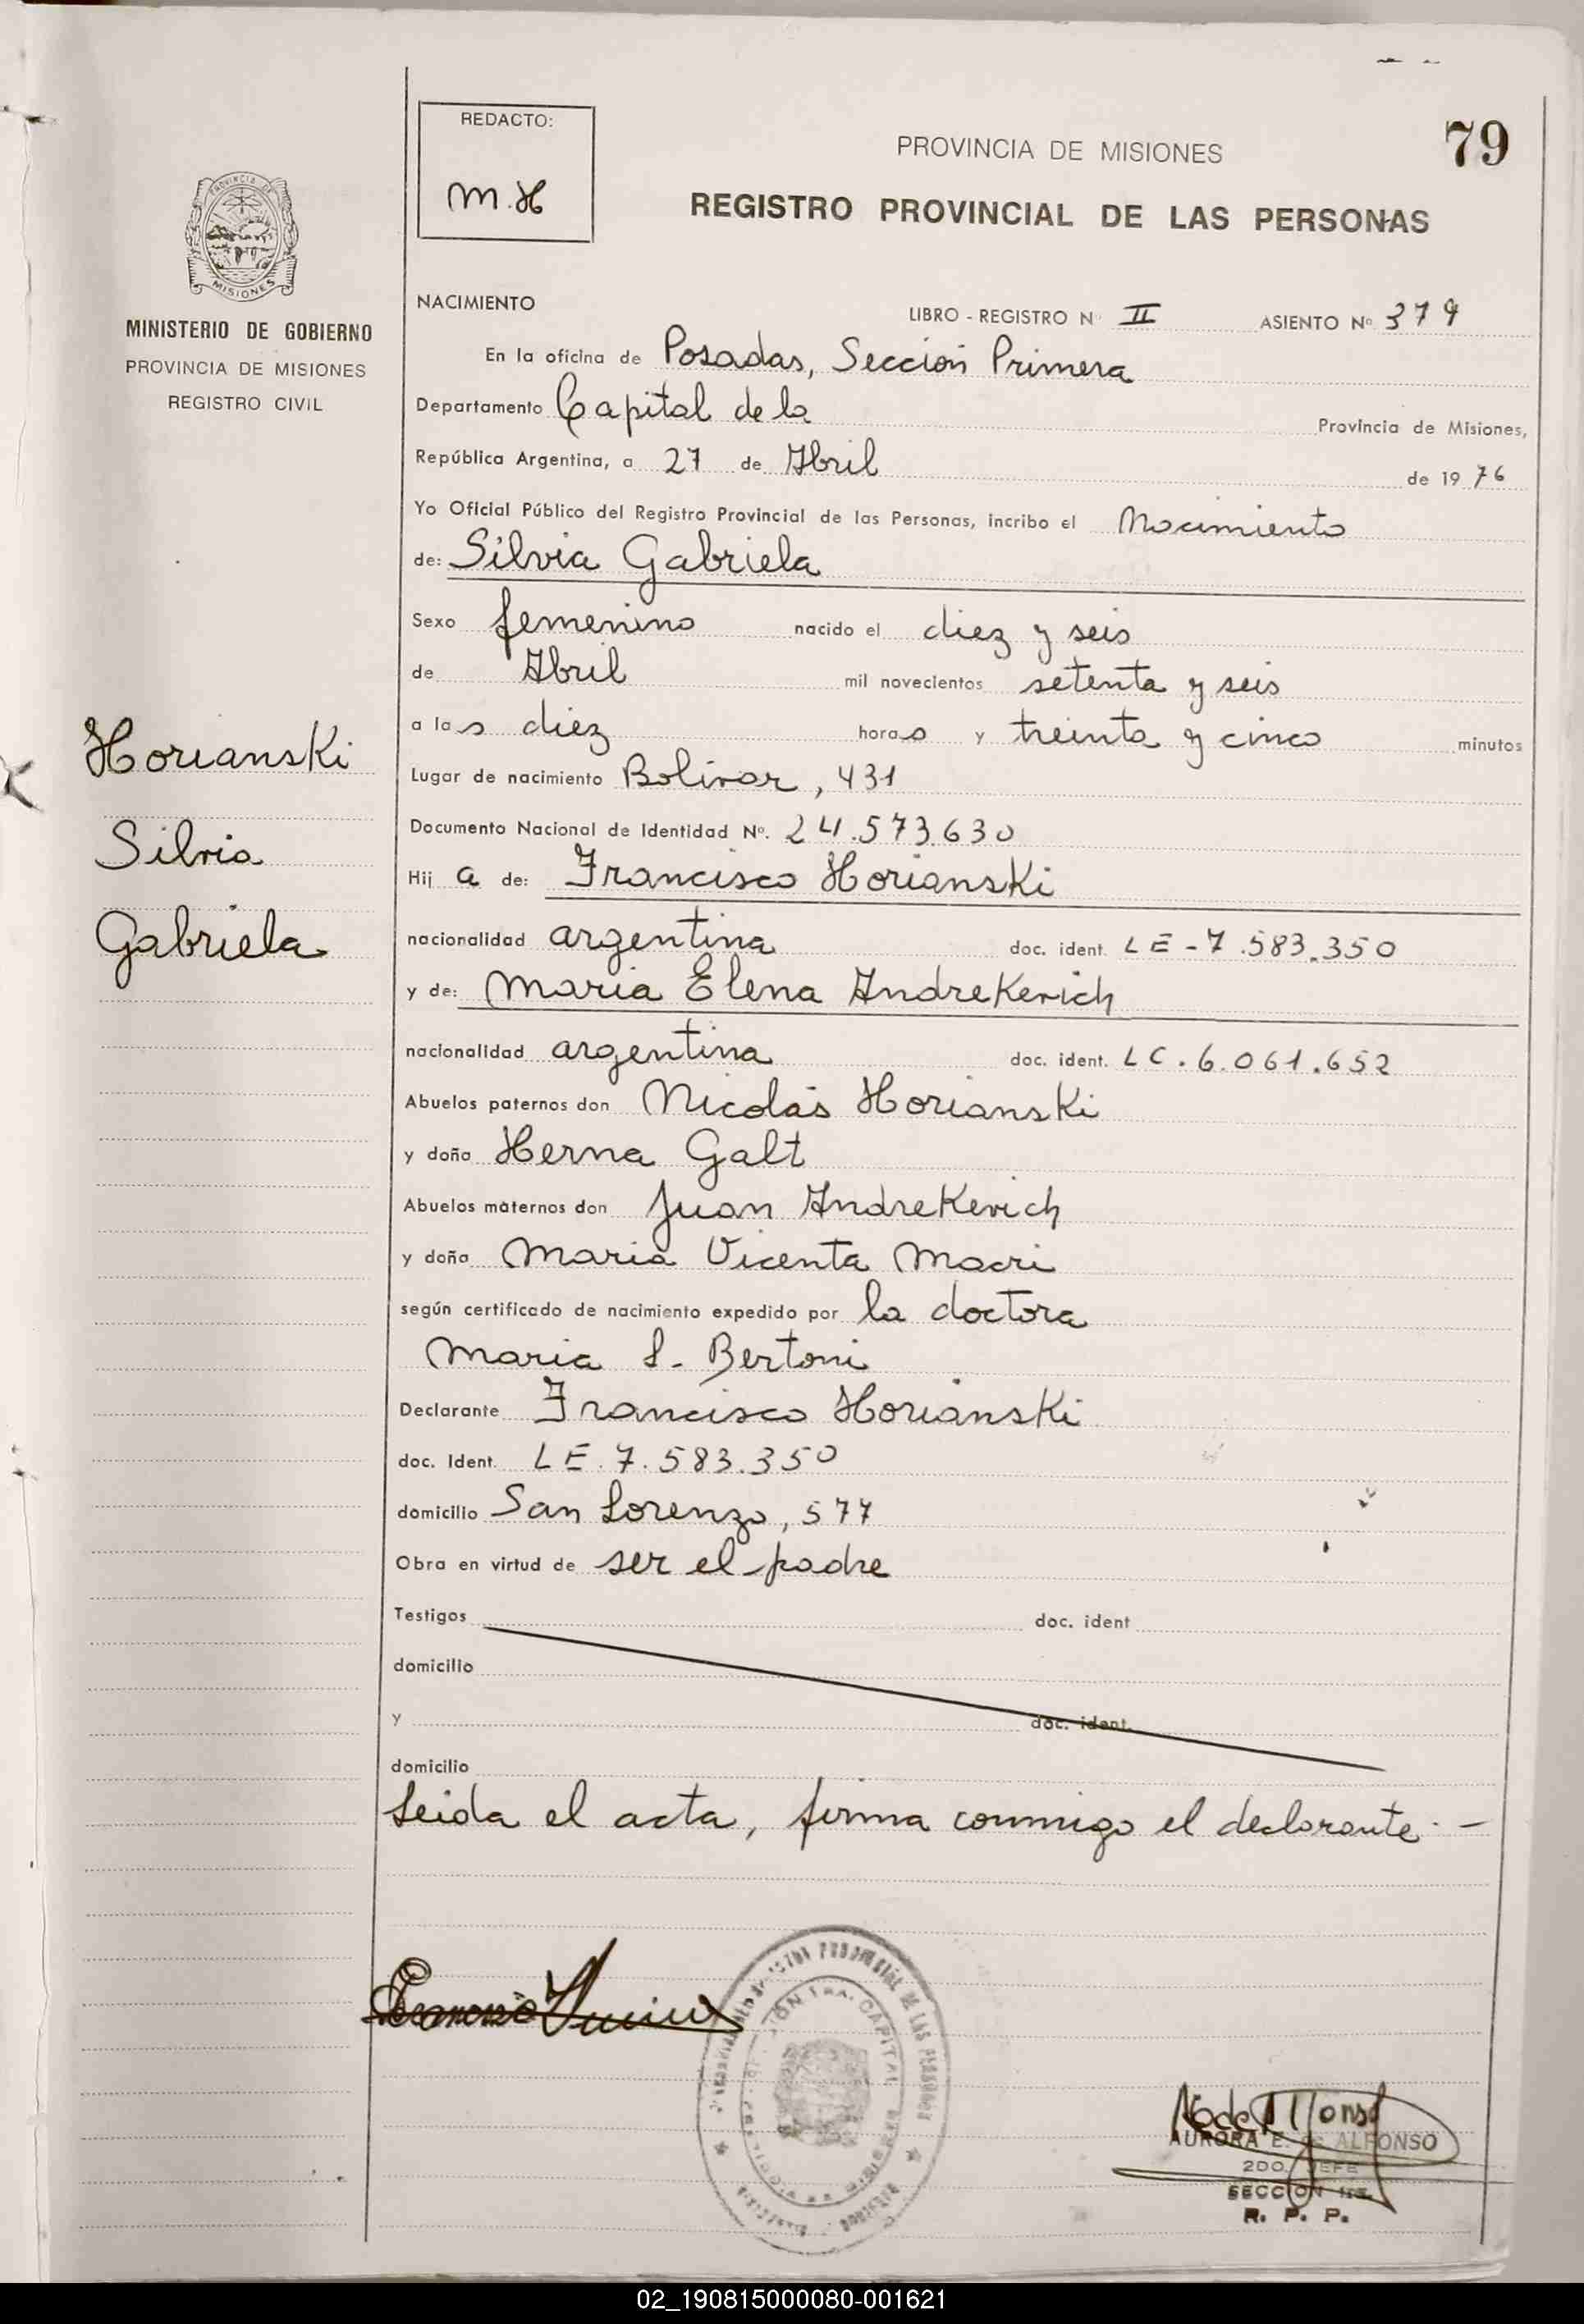 REDACTO:
M.H
PROVINCIA DE MISIONES
79
REGISTRO PROVINCIAL DE LAS PERSONAS
PROVINCIA DE
MISIONES
MINISTERIO DE GOBIERNO
PROVINCIA DE MISIONES
REGISTRO CIVIL
NACIMIENTO LIBRO - REGISTRO N II ASIENTO Nº 379
En la oficina de Posadas, Sección Primera
Departamento Capital de la Provincia de Misiones,
República Argentina, a 27 de Abril de 19 76
Yo Oficial Público del Registro Provincial de las Personas, incribo el Nacimiento
de: Silvia Gabriela
Sexo femenino nacido el diez y seis
de Abril mil novecientos setenta y seis
a las diez horas y treinta y cinco minutos
Horianski
Silvia
Gabriela
Lugar de nacimiento Bolivar, 431
Documento Nacional de Identidad Nº. 24.573.630
Hij a de: Francisco Horianski
nacionalidad argentina doc. ident. LE-7.583.350
y de: Maria Elena Andrekevich
nacionalidad argentina doc. ident. LC.6.061.652
Abuelos paternos don Nicolás Horianski
y doña Herna Galt
Abuelos maternos don Juan Andrekevich
y doña Maria Vicenta Macri
según certificado de nacimiento expedido por la doctora
Maria L. Bertoni
Declarante Francisco Horianski
doc. Ident. LE.7.583.350
domicilio San Lorenzo, 577
Obra en virtud de ser el padre
Testigos doc. ident
domicilio
y doc. ident.
domicilio
Leida el acta, firma conmigo el declarante.-
AURORA E. de ALFONSO
2DO. JEFE
SECCION 1ra.
R. P. P.
02_190815000080-001621